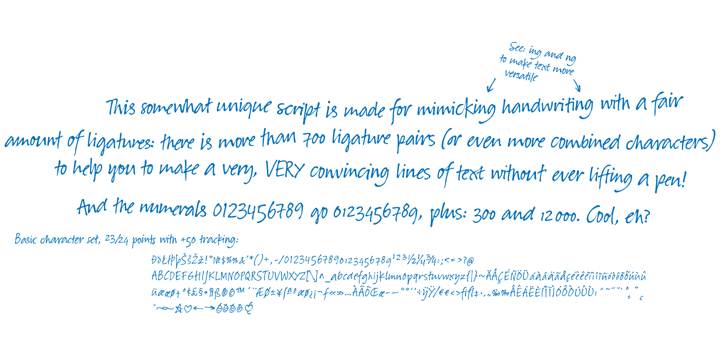 See: ing and ng
to make text more
versatile
This somewhat unique script is made for mimicking handwriting with a fair
amount of ligatures: there is more than 700 ligature pairs (or even more combined characters)
to help you to make a very, VERY convincing lines of text without ever lifting a pen!
And the numerals 0123456789 go 0123456789, plus: 300 and 12000. Cool, eh?
Basic character set, 23/24 points with +50 tracking:
ABCDEFGHIJKLMNOPQRSTUVWXYZ[\]^_abcdefghijklmnopqrstuvwxyz{|}~ÄÅÇÉÑÖÜáàâäãåçéèêëíìîïñóòôöõúùûü